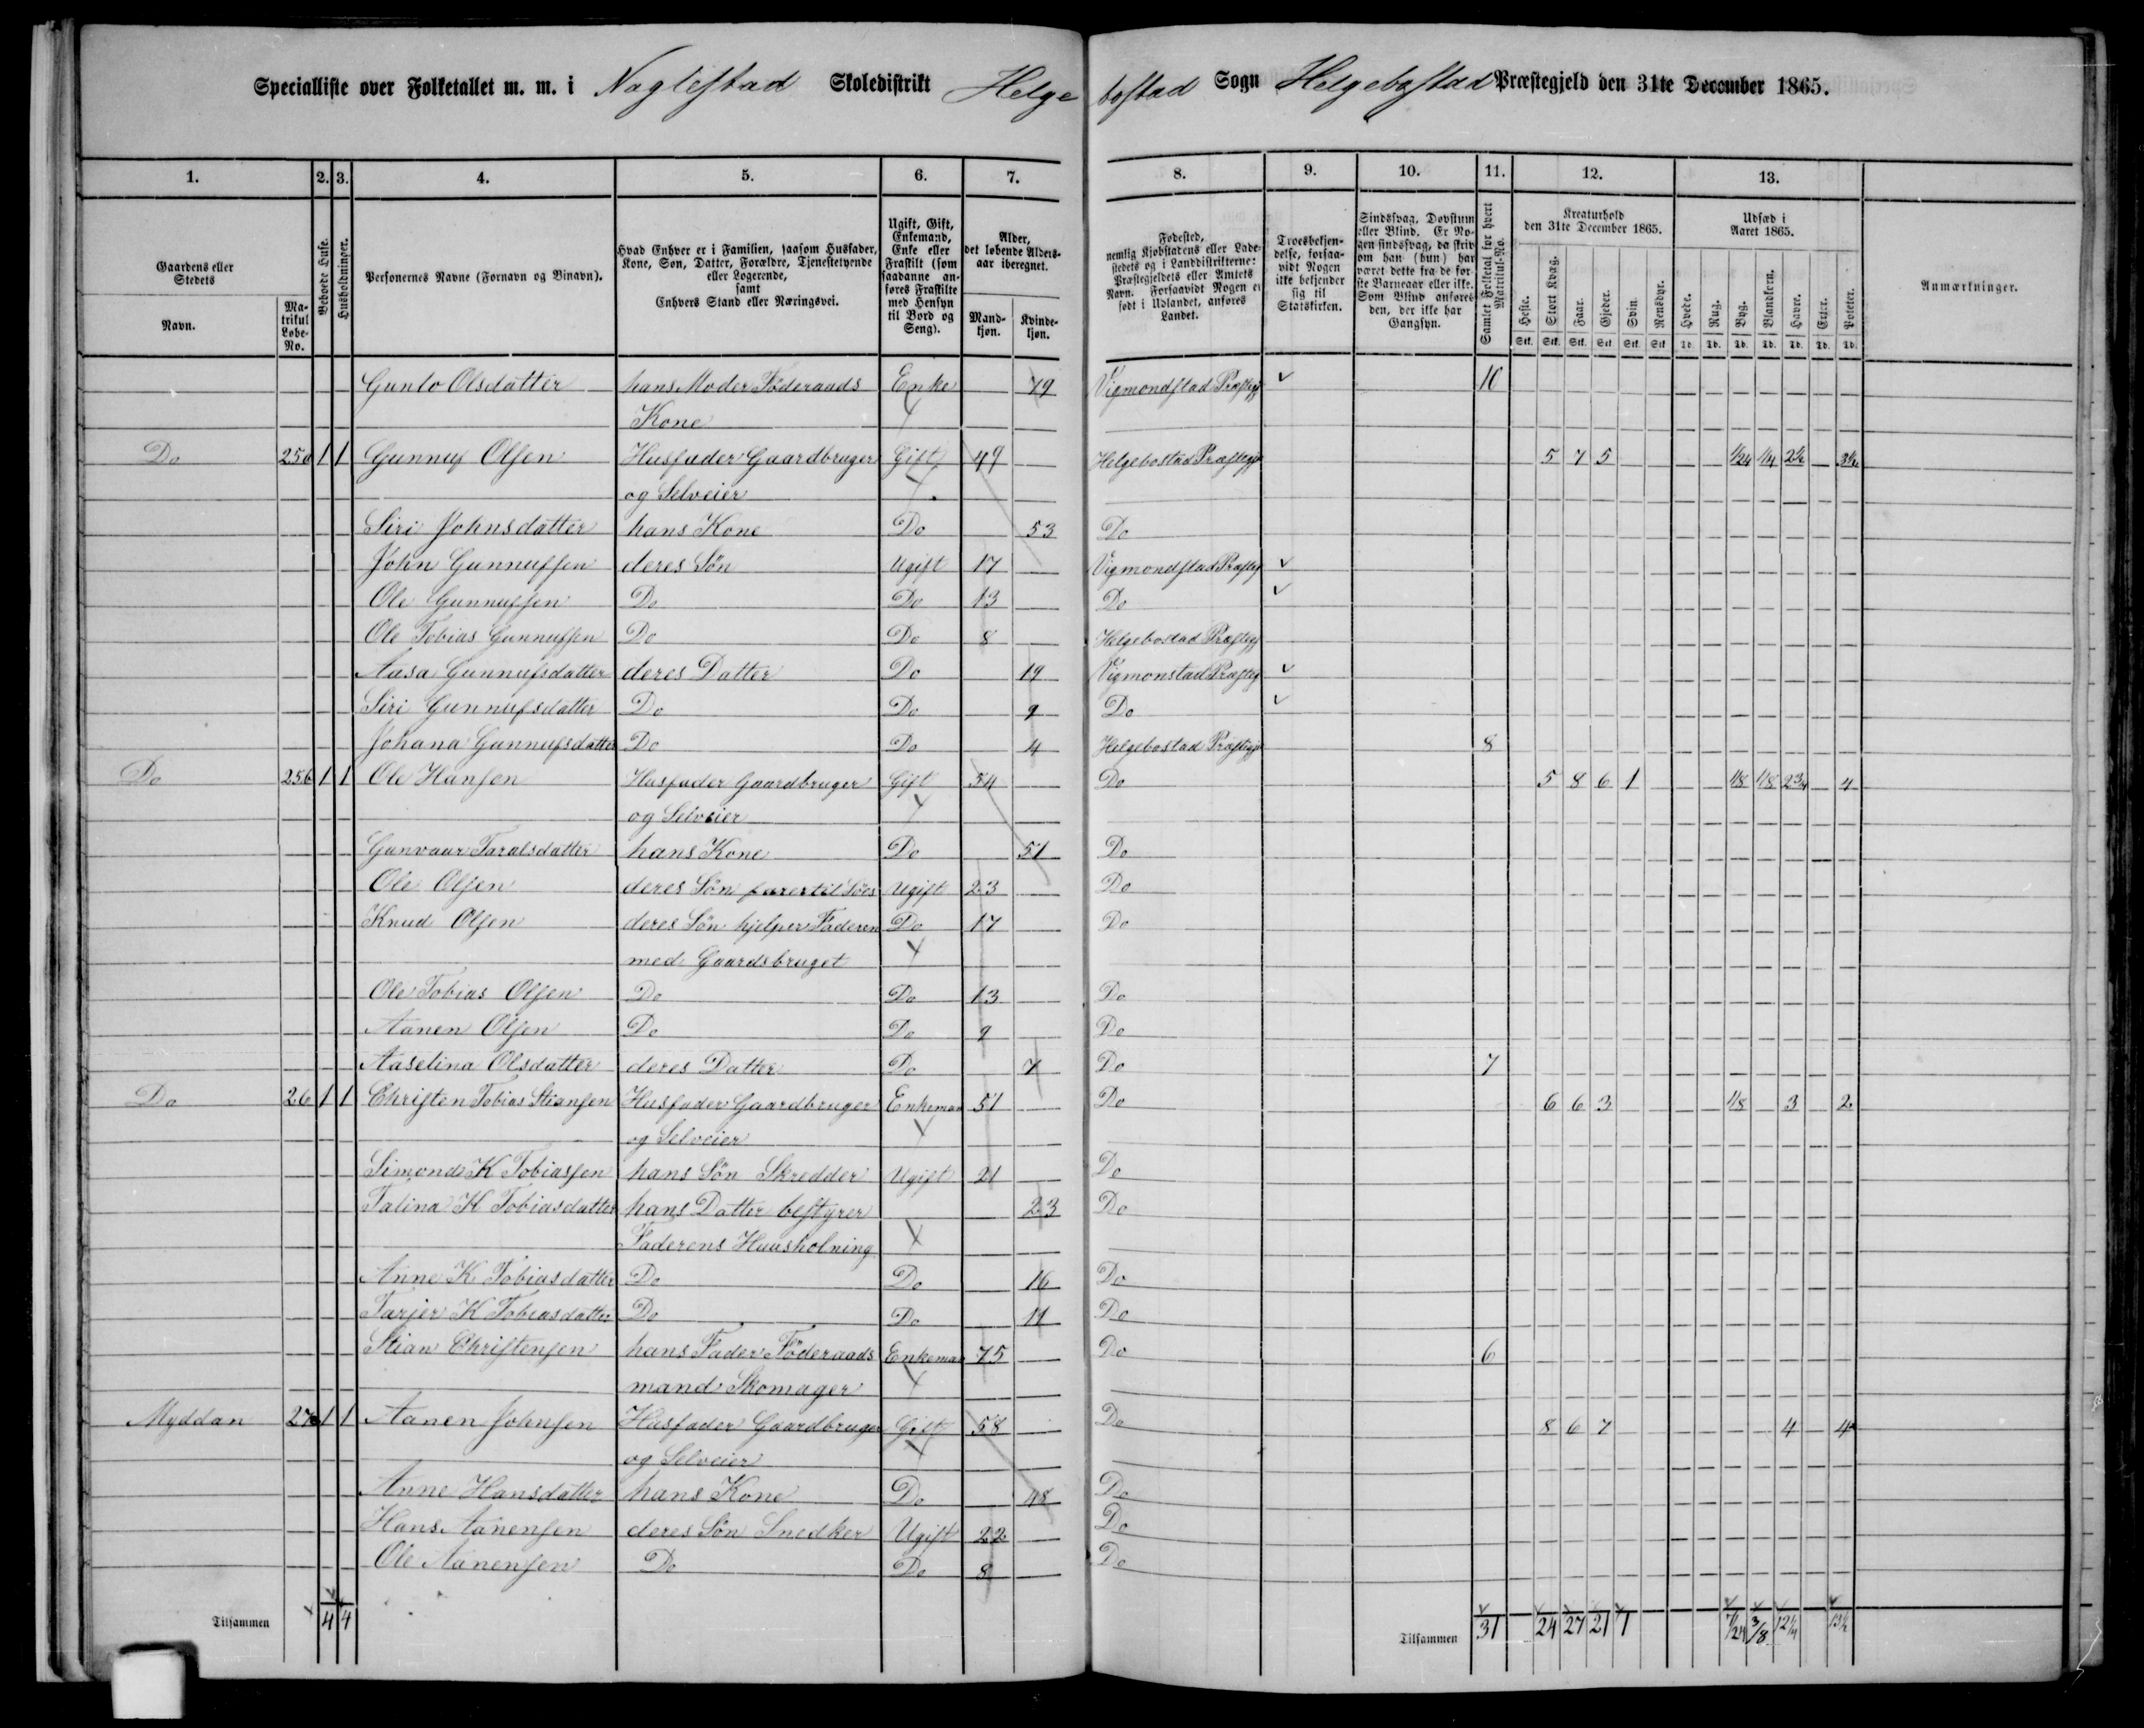 Specialliste over Folketallet m. m. i Naglestad Skoledistrikt Helgebostad Sogn Helgebostad Præstegjeld den 31te December 1865.
1. 2. 3. 4. 5. 6. 7. 8. 9. 10. 11. 12. 13.
Gaardens eller Stedets
Navn.
Matrikul Løbe-No.
Beboede Huse.
Husholdninger.
Personernes Navne (Fornavn og Binavn).
Hvad Enhver er i Familien, saasom Husfader, Kone, Søn, Datter, Forældre, Tjenestetyende eller Logerende, samt Enhvers Stand eller Næringsvei.
Ugift, Gift, Enkemand, Enke eller Fraskilt (som saadanne anføres Fraskilte med Hensyn til Bord og Seng).
Alder, det løbende Aldersaar iberegnet.
Mandkjøn. Kvindekjøn.
Fødested, nemlig Kjøbstadens eller Ladestedets og i Landdistrikterne: Præstegjeldets eller Amtets Navn. Forsaavidt Nogen er født i Udlandet, anføres Landet.
Troesbekjendelse, forsaavidt Nogen ikke bekjender sig til Statskirken.
Sindssvag, Døvstum eller Blind. Er Nogen sindssvag, da skrives om han (hun) har været dette fra de første Barneaar eller ikke. Som Blind anføres den, der ikke har Gangsyn.
Samlet Folketal for hvert Matrikul-No.
Kreaturhold den 31te December 1865.
Heste. Stort Kvæg. Faar. Gjeder. Svin. Rensdyr.
Stk. Stk. Stk. Stk. Stk. Stk.
Udsæd i Aaret 1865.
Hvede. Rug. Byg. Blandkorn. Havre. Erter. Poteter.
Td. Td. Td. Td. Td. Td. Td.
Anmærkninger.
Gunlo Olsdatter hans Moder Föderaads Enke 79 Vigmondstad Præstegj 10
Kone
Do 250 1 1 Gunnuf Olsen Husfader Gaardbruger Gift 49 Helgebostad Præstegj 5 7 5 1/24 1/4 2½ 3½
og Selveier
Siri Johnsdatter hans Kone Do 53 Do
John Gunnufsen deres Sön Ugift 17 Vigmondstad Præsteg
Ole Gunnufsen Do Do 13 Do
Ole Tobias Gunnufsen Do Do 8 Helgebostad Præstegj
Aasa Gunnufsdatter deres Datter Do 19 Vigmonstad Præsteg
Siri Gunnufsdatter Do Do 9 Do
Johana Gunnufsdatter Do Do 4 Helgebostad Præstegj 8
Do 256 1 1 Ole Hansen Husfader Gaardbruger Gift 54 Do 5 8 6 1 1/8 1/8 2¾ 4
og Selveier
Gunvaar Taralsdatter hans Kone Do 51 Do
Ole Olsen deres Sön farer til Söes Ugift 23 Do
Knud Olsen deres Sön hjelper Faderen Do 17 Do
med Gaardsbruget
Ole Tobias Olsen Do Do 13 Do
Aanen Olsen Do Do 9 Do
Aaselina Olsdatter deres Datter Do 7 Do 7
Do 26 1 1 Christen Tobias Stiansen Husfader Gaardbruger Enkeman 51 Do 6 6 3 1/8 3 2
og Selveier
Simond K Tobiassen hans Sön Skredder Ugift 21 Do
Talina K Tobiasdatter hans Datter bestyrer 23 Do
Faderens Huusholning
Anne K Tobiasdatter Do Do 16 Do
Tarjer K Tobiasdatter Do Do 11 Do
Stian Christensen hans Fader Föderaads Enkeman 75 Do 6
mand Skomager
Myddan 27 1 1 Aanen Johnsen Husfader Gaardbruger Gift 58 Do 8 6 7 4 4
og Selveier
Anne Hansdatter hans Kone Do 48 Do
Hans Aanensen deres Sön Snedker Ugift 22 Do
Ole Aanensen Do Do 8 Do
Tilsammen 4 4 Tilsammen 31 24 27 21 1 7/24 3/8 12¼ 13½